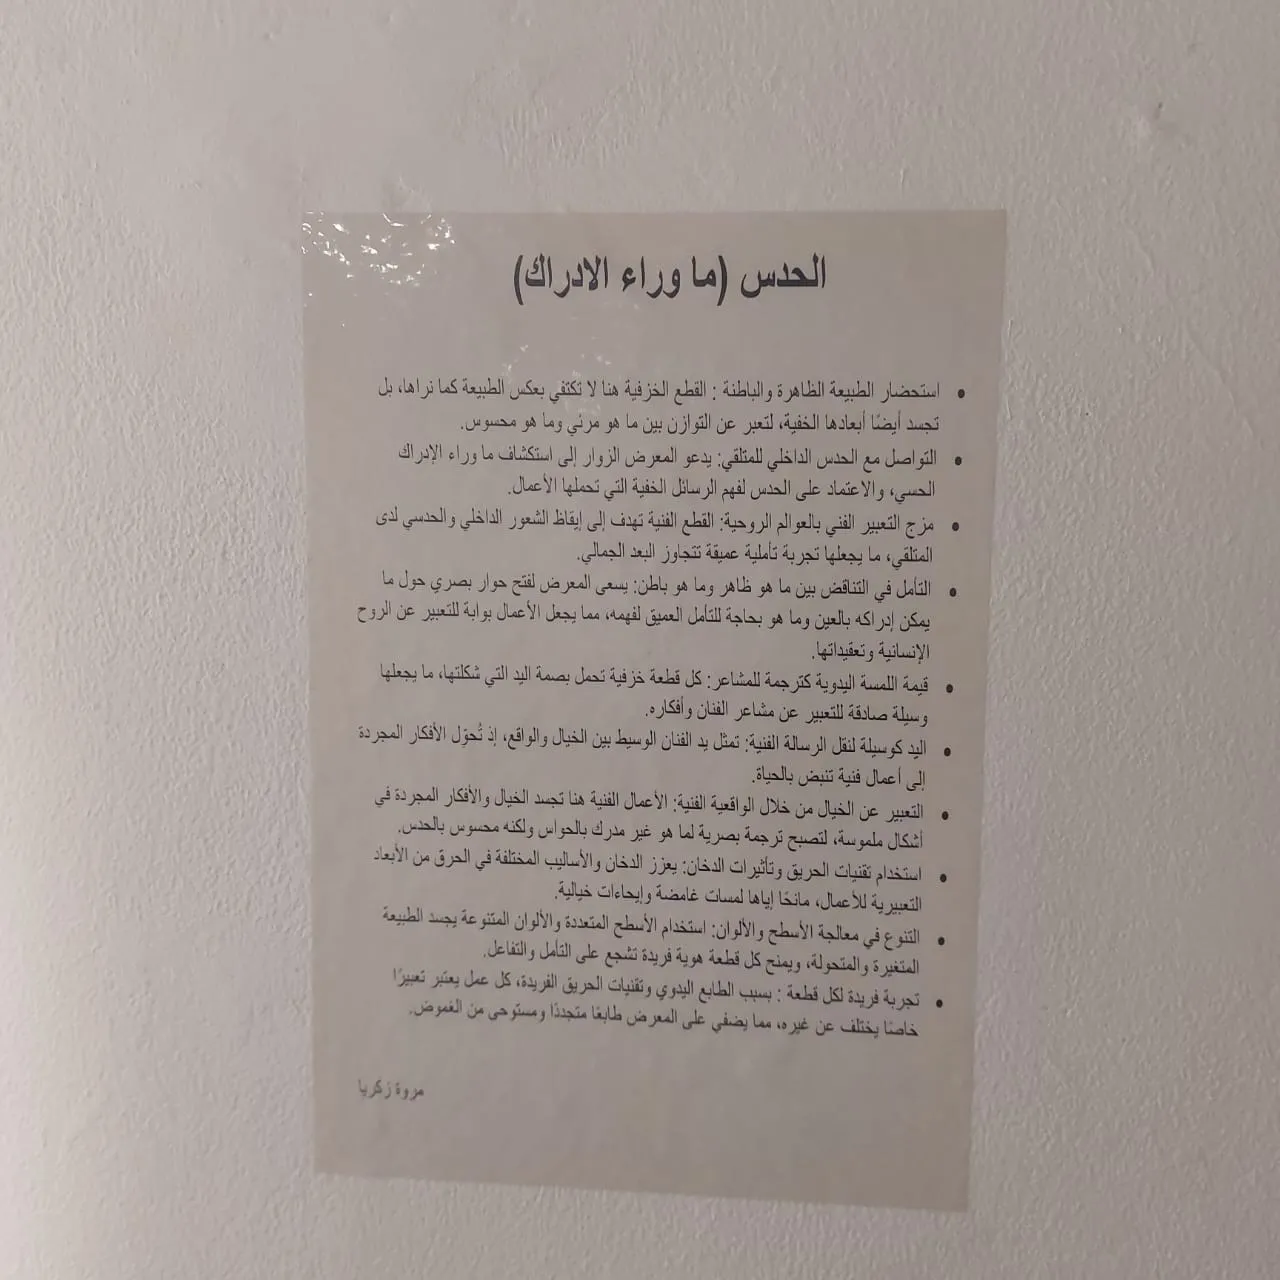 الحدس (ما وراء الادراك)
• استحضار الطبيعة الظاهرة والباطنة : القطع الخزفية هنا لا تكتفي بعكس الطبيعة كما نراها، بل
تجسد أيضًا أبعادها الخفية، لتعبر عن التوازن بين ما هو مرئي وما هو محسوس.
• التواصل مع الحدس الداخلي للمتلقي: يدعو المعرض الزوار إلى استكشاف ما وراء الإدراك
الحسي، والاعتماد على الحدس لفهم الرسائل الخفية التي تحملها الأعمال.
• مزج التعبير الفني بالعوالم الروحية: القطع الفنية تهدف إلى إيقاظ الشعور الداخلي والحدسي لدى
المتلقي، ما يجعلها تجربة تأملية عميقة تتجاوز البعد الجمالي.
• التأمل في التناقض بين ما هو ظاهر وما هو باطن: يسعى المعرض لفتح حوار بصري حول ما
يمكن إدراكه بالعين وما هو بحاجة للتأمل العميق لفهمه، مما يجعل الأعمال بوابة للتعبير عن الروح
الإنسانية وتعقيداتها.
• قيمة اللمسة اليدوية كترجمة للمشاعر: كل قطعة خزفية تحمل بصمة اليد التي شكلتها، ما يجعلها
وسيلة صادقة للتعبير عن مشاعر الفنان وأفكاره.
• اليد كوسيلة لنقل الرسالة الفنية: تمثل يد الفنان الوسيط بين الخيال والواقع، إذ تُحوّل الأفكار المجردة
إلى أعمال فنية تنبض بالحياة.
• التعبير عن الخيال من خلال الواقعية الفنية: الأعمال الفنية هنا تجسد الخيال والأفكار المجردة في
أشكال ملموسة، لتصبح ترجمة بصرية لما هو غير مدرك بالحواس ولكنه محسوس بالحدس.
• استخدام تقنيات الحريق وتأثيرات الدخان: يعزز الدخان والأساليب المختلفة في الحرق من الأبعاد
التعبيرية للأعمال، مانحًا إياها لمسات غامضة وإيحاءات خيالية.
• التنوع في معالجة الأسطح والألوان: استخدام الأسطح المتعددة والألوان المتنوعة يجسد الطبيعة
المتغيرة والمتحولة، ويمنح كل قطعة هوية فريدة تشجع على التأمل والتفاعل.
• تجربة فريدة لكل قطعة : بسبب الطابع اليدوي وتقنيات الحريق الفريدة، كل عمل يعتبر تعبيرًا
خاصًا يختلف عن غيره، مما يضفي على المعرض طابعًا متجددًا ومستوحى من الغموض.
مروة زكريا